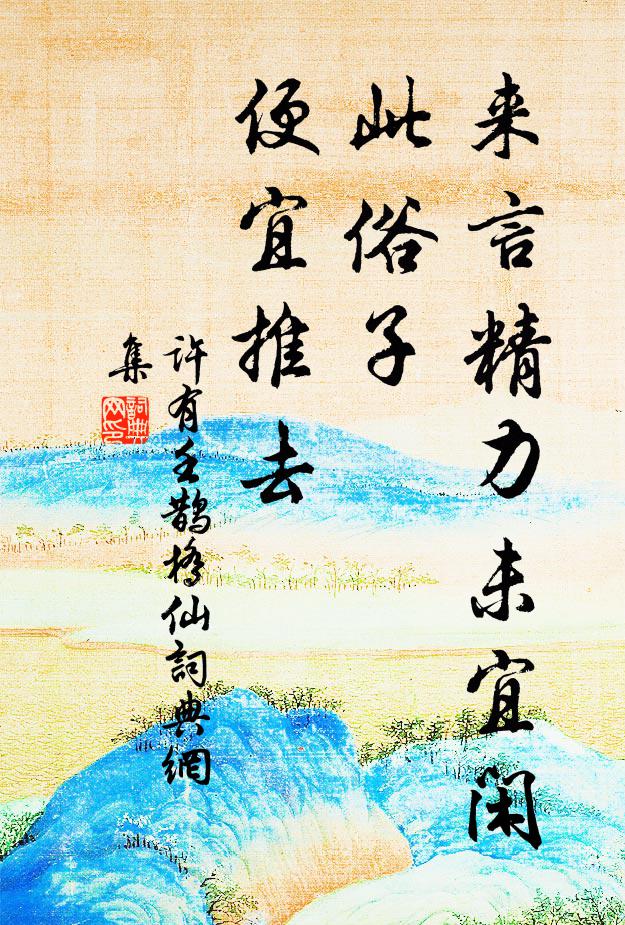 来言精力未宜闲
此俗子
便宜推去
许有壬鹊橋仙詞典網
集
詞典网印